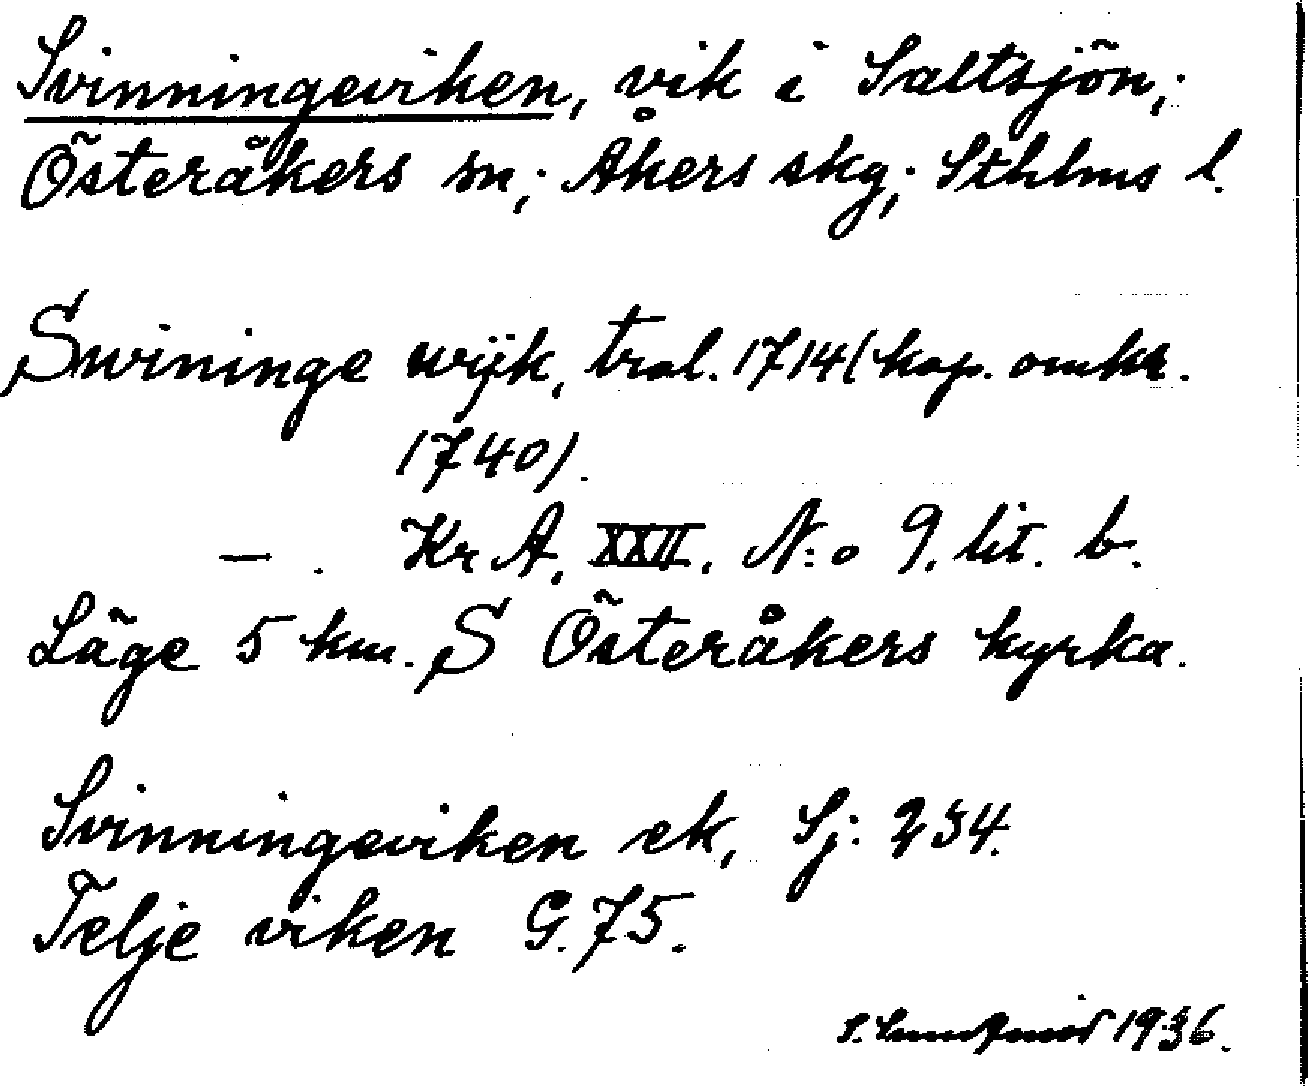 Svinningeviken, vik i Saltsjön;
Österåkers sn; Åkers skg; Sthlms l.
Swininge wijk, tral. 1714 (kop. omkr.
1740).
—. Kr A. XXII. N:o 9. lit. b.
Läge 5 km. S Österåkers kyrka.
Svinningeviken ek, Sj: 234.
Telje viken G. 75.
S. 1936.